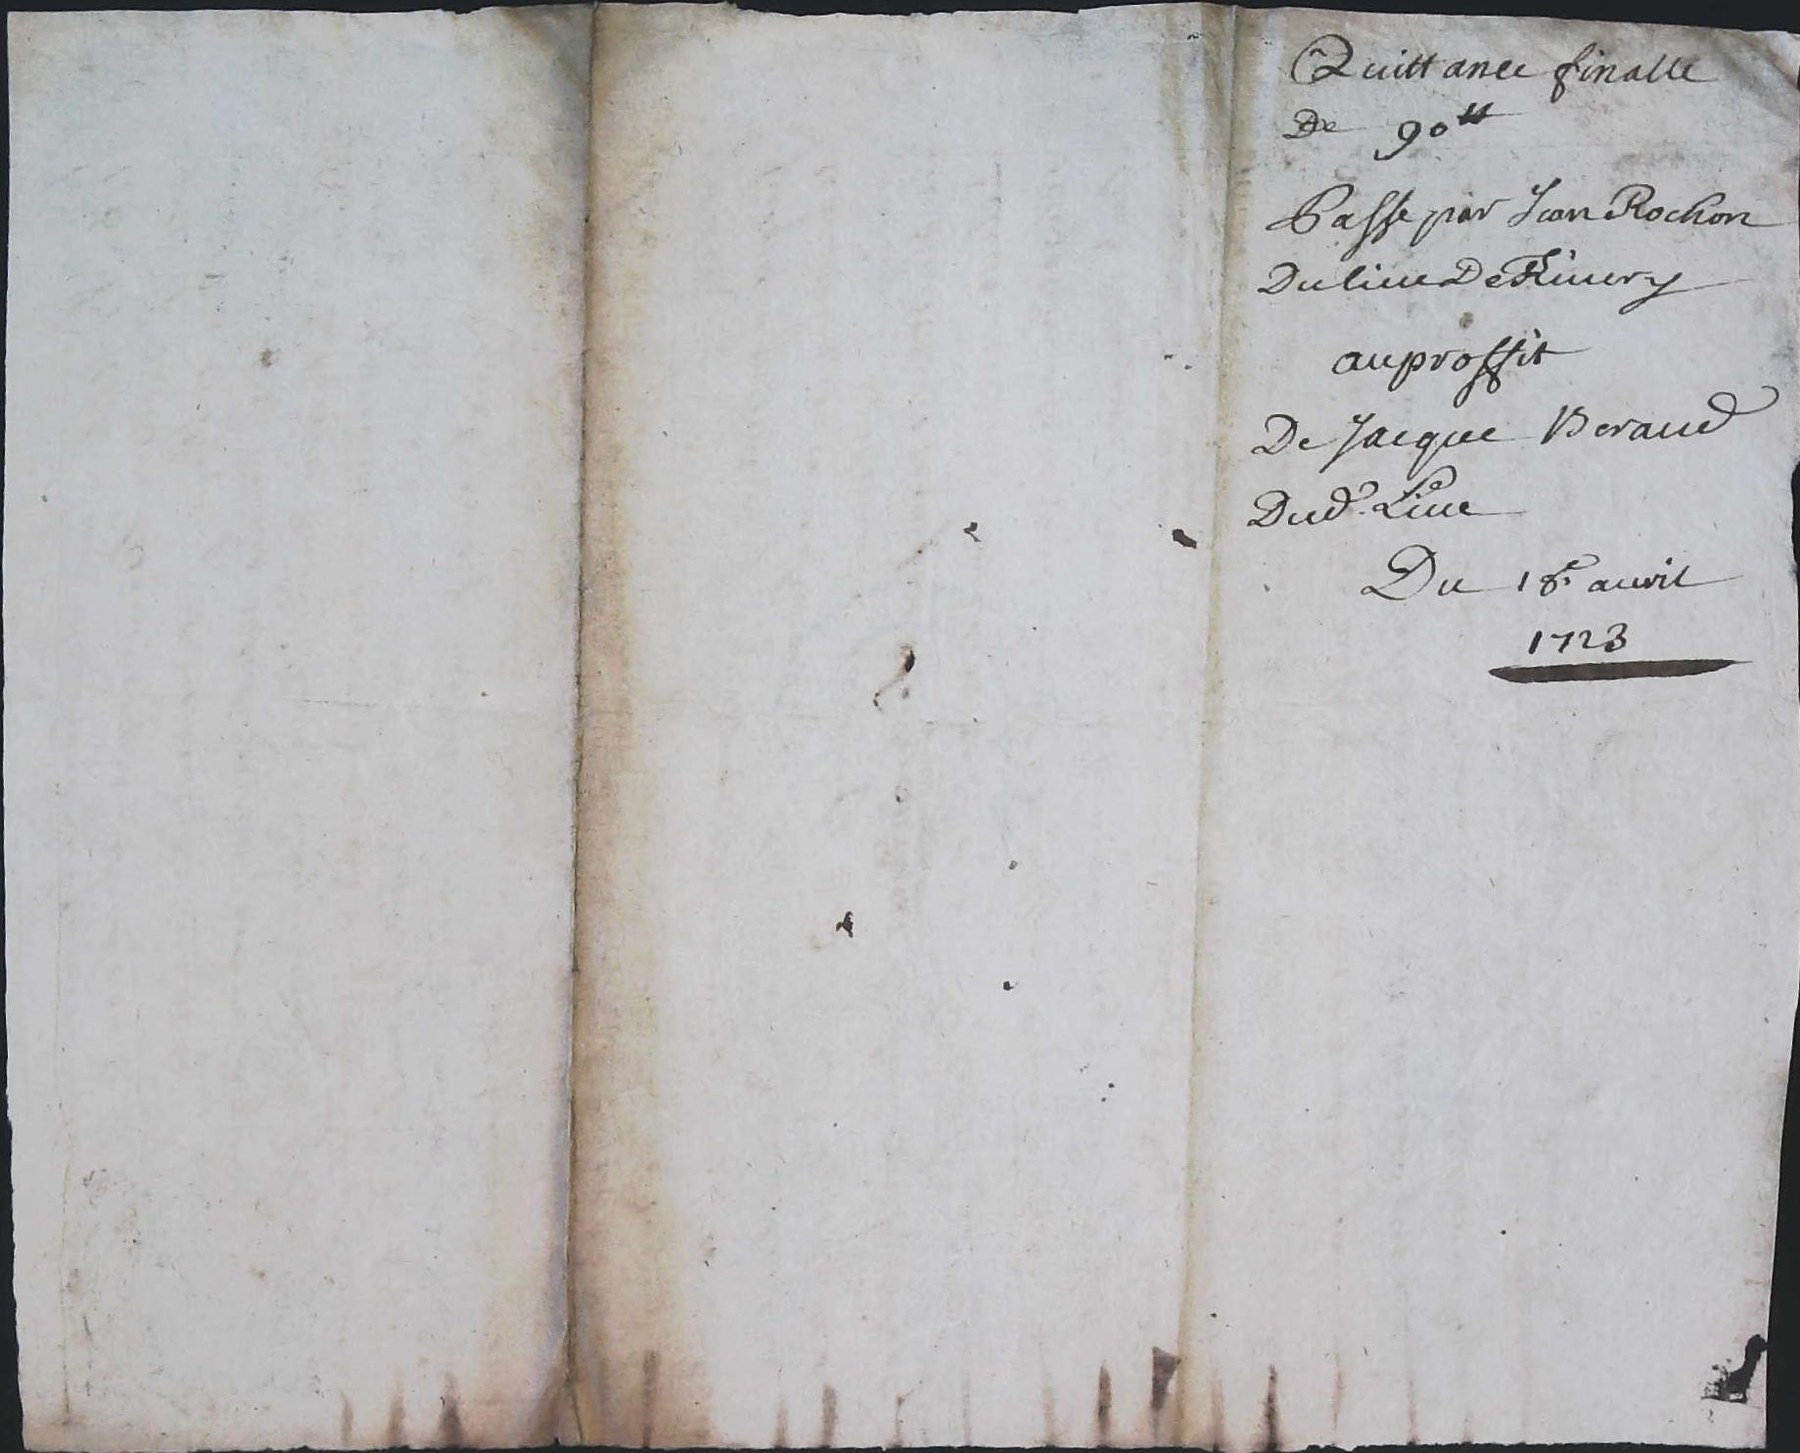 Quittance finalle
De 90 ₶
Passe par Jean Rochon
Du lieu De Rivery
au proffit
De Jacque Beraud
Dud. Lieu
Du 18e avril
1723